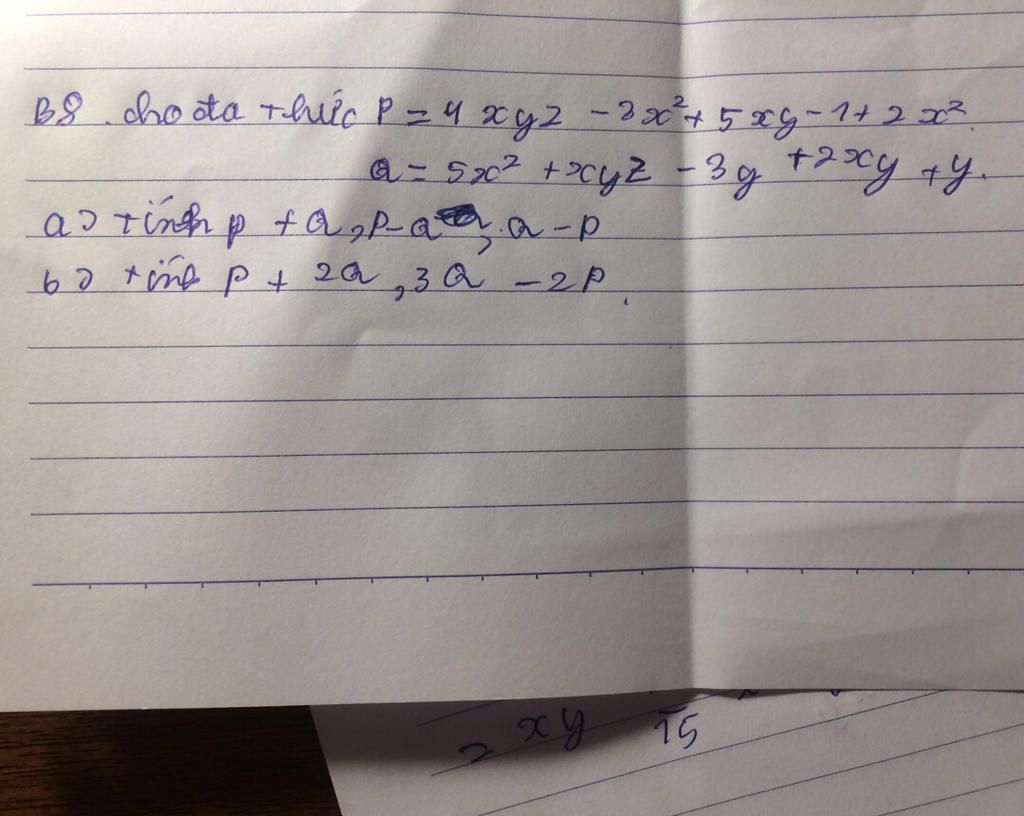 B8. cho đa thức P = 4xyz - 3x² + 5xy - 1 + 2x².
Q = 5x² + xyz - 3y + 2xy + y.
a) tính P + Q, P - Q, Q - P
b) tính P + 2Q, 3Q - 2P.
xy 15